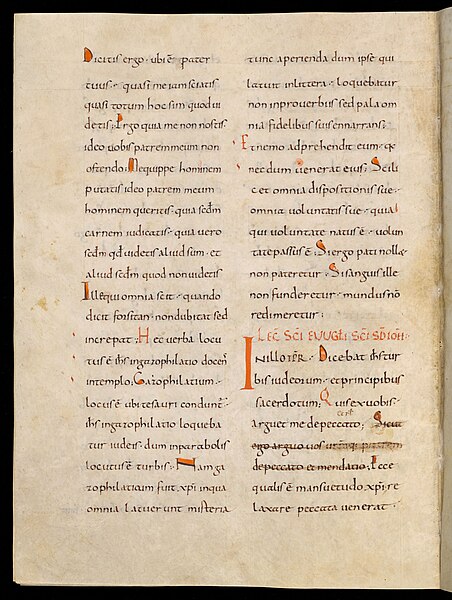 Dicitis ergo · ubi ē pater
tuus · quasi me iam sciatis
quasi totum hoc sim quod ui
detis · Ergo quia me non nostis
ideo uobis patrem meum non
ostendo · Me quippe hominem
putatis ideo patrem meum
hominem queritis · quia scdm
carnem iudicatis · quia uero
scdm qđ uidetis aliud sum · et
aliud scdm quod non uidetis
Ille qui omnia scit · quando
dicit forsitan · non dubitat sed
increpat · Hec uerba locu
tus ē ihs in gazophilatio docens
in templo · Gazophilatium ·
locus ē ubi tesauri condunt̄ ·
ihs in gazophilatio loqueba
tur iudeis · dum in parabolis
locutus ē turbis · Nam ga
zophilatium fuit xp̄i in qua
omnia latuerunt misteria
tunc aperienda dum ipse qui
latuit in littera · loquebatur
non in prouerbiis sed palam om
nia fidelibus suis ennarrans ·
Et nemo adprehendit eum · q·
nec dum uenerat eius · Scili
cet omnia dispositionis sue ·
omnia uoluntatis sue · quia
qui uoluntate natus ē · uolun
tate passus ē · Si ergo pati nollet
non pateretur · Si sanguis ille
non funderetur · mundus nō
redimeretur ·
LEC̄ SC̄I EVVGL̄I SC̄I SD̄ IOH̄
IN ILLO TEP̄R · Dicebat ihs tur
bis iudeorum · et principibus
sacerdotum · Quis ex uobis ·
arguet me de peccato ·
ergo arguo uos
de peccato et mendatio · Ecce
qualis ē mansuetudo xp̄i · re
laxare peccata uenerat ·